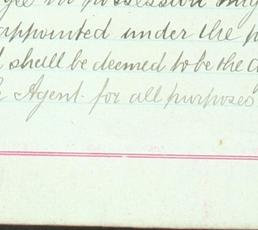 in possession
appointed under the
shall be deemed to be the
Agent for all purposes